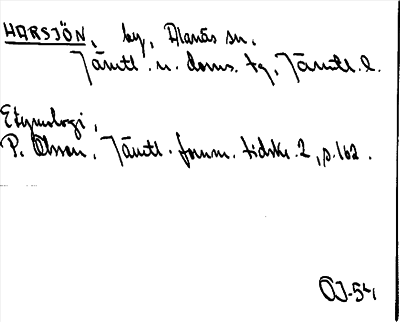 HARSJÖN, by, Alanäs sn.
Jämtl. n. doms. tg, Jämtl. l.
Etymologi,
P. Olsson, Jämtl. fornm. tidskr. 2, s. 162.
ÖJ-54